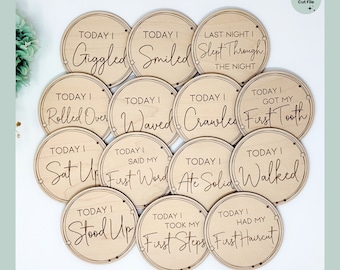 Cut File
TODAY I
Giggled
TODAY I
Smiled
LAST NIGHT I
Slept Through
THE NIGHT
TODAY I
Rolled Over
TODAY I
Waved
TODAY I
Crawled
TODAY I
GOT MY
First Tooth
TODAY I
Sat Up
TODAY I
SAID MY
First Word
TODAY I
Ate Solid
TODAY I
Walked
TODAY I
Stood Up
TODAY I
TOOK MY
First Steps
TODAY I
HAD MY
First Haircut